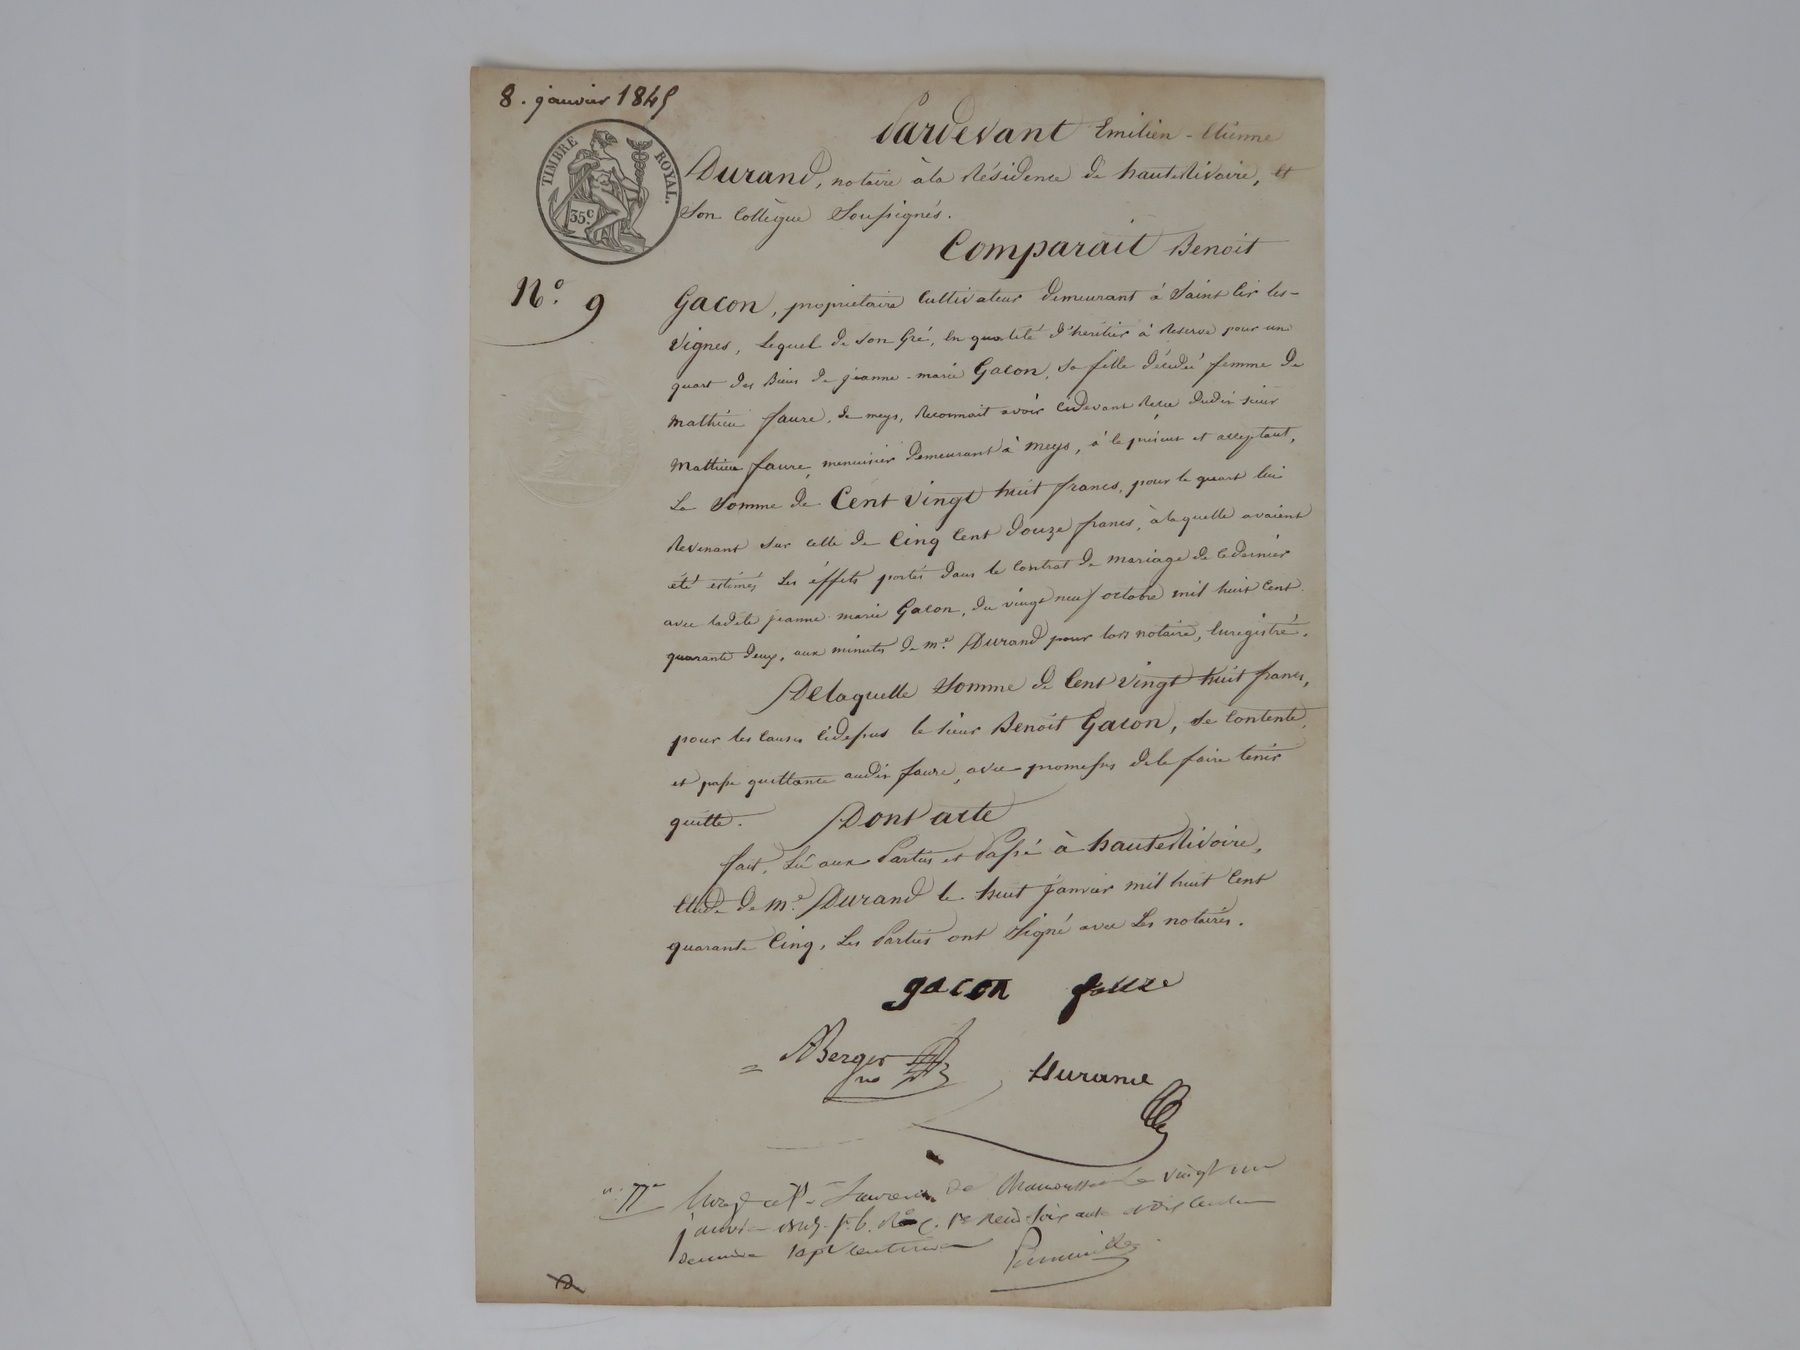 8. janvier 1845
Pardevant Emilien-Etienne
TIMBRE ROYAL.
35c
Durand, notaire à la Résidence de hauteRivoire, et
Son Collègue Soussignés.
Comparait Benoit
No. 9
Gacon, propriétaire Cultivateur demeurant à Saint Cir les-
Vignes, Lequel de son Gré, en qualité d'héritier à Reserve pour un
quart des Biens de jeanne-marie Gacon, sa fille décédée femme de
Mathieu faure, de meys, Reconnait avoir Cidevant Reçu dudit sieur
Mathieu faure, menuisier demeurant à Meys, à le présent et acceptant,
La Somme de Cent Vingt huit francs, pour le quart lui
Revenant sur celle de Cinq Cent douze francs, à laquelle avaient
été estimés Les éffets portés dans le Contrat de mariage de Cedernier
avec ladite jeanne-marie Gacon, du vingt neuf octobre mil huit Cent
quarante deux, aux minutes de me. Durand pour lors notaire, Enregistré.
Delaquelle Somme de Cent Vingt huit francs,
pour les Causes Cidessus le sieur Benoit Gacon, se Contente,
et passe quittance audit faure, avec promesses de le faire tenir
quitte. Dont acte
fait, Lu aux Parties et Passé à hauteRivoire,
Etude de me. Durand le huit Janvier mil huit Cent
quarante Cinq, Les Parties ont Signé avec Les notaires.
gacon faure
Berger Durand